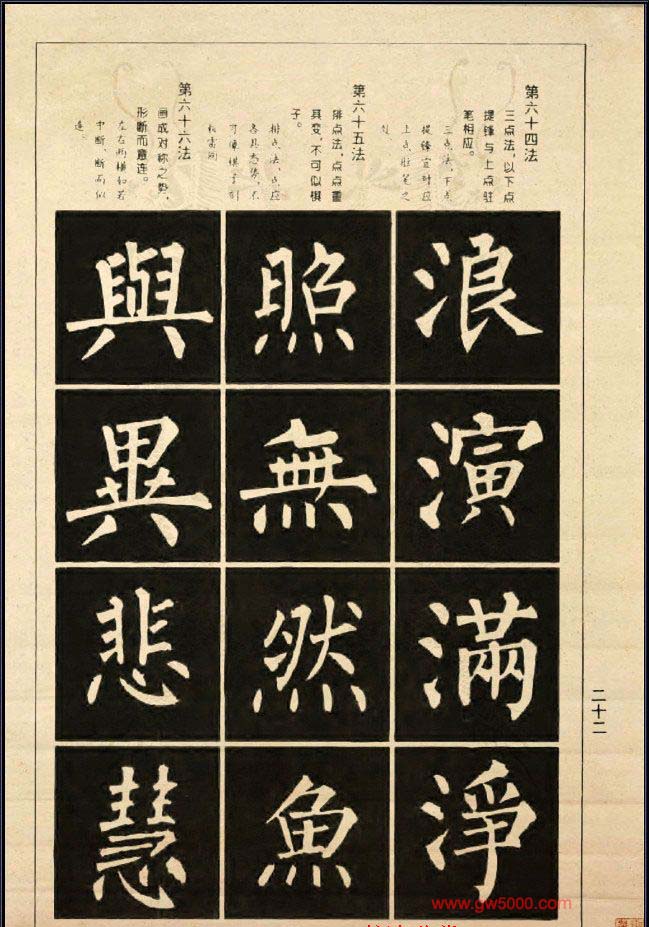 第六十四法
三点法，以下点
提锋与上点驻
笔相应。
三点法，下点
提锋宜对应
上点驻笔之
浪
演
满
净
第六十五法
排点法，点点重
其变，不可似棋
子。
排点法，点应
各具态势，不
可像棋子刻
照
無
然
魚
第六十六法
画成对称之势，
形断而意连。
左右两横勾若
中断，断而似
連。
與
異
悲
慧
二十二
www.gw5000.com